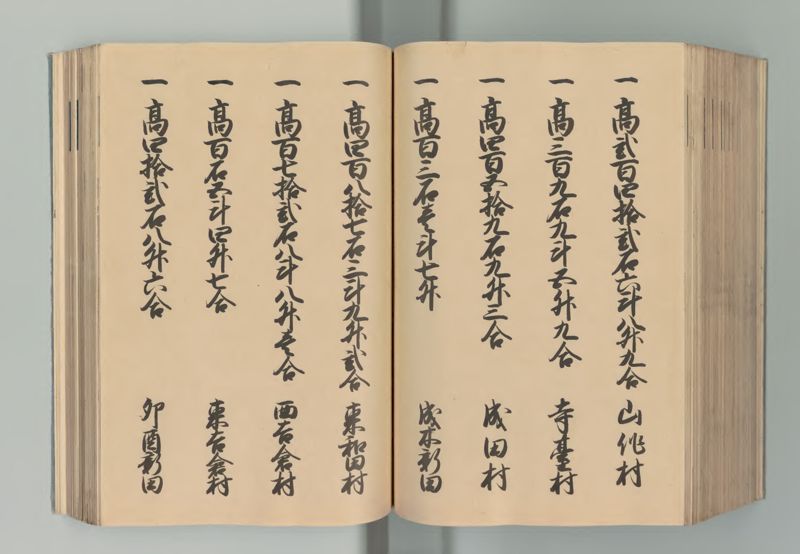 一 髙弐百四拾弐石六斗八升九合 山作村
一 髙三百九石九斗五升九合 寺臺村
一 髙四百五拾九石九升三合 成田村
一 髙百三石壱斗七升 成木新田
一 髙四百八拾七石三斗九升弐合 東和田村
一 髙百七拾弐石八斗八升壱合 西吉倉村
一 髙百石五斗四升七合 東吉倉村
一 髙四拾弐石八升六合 卯酉新田